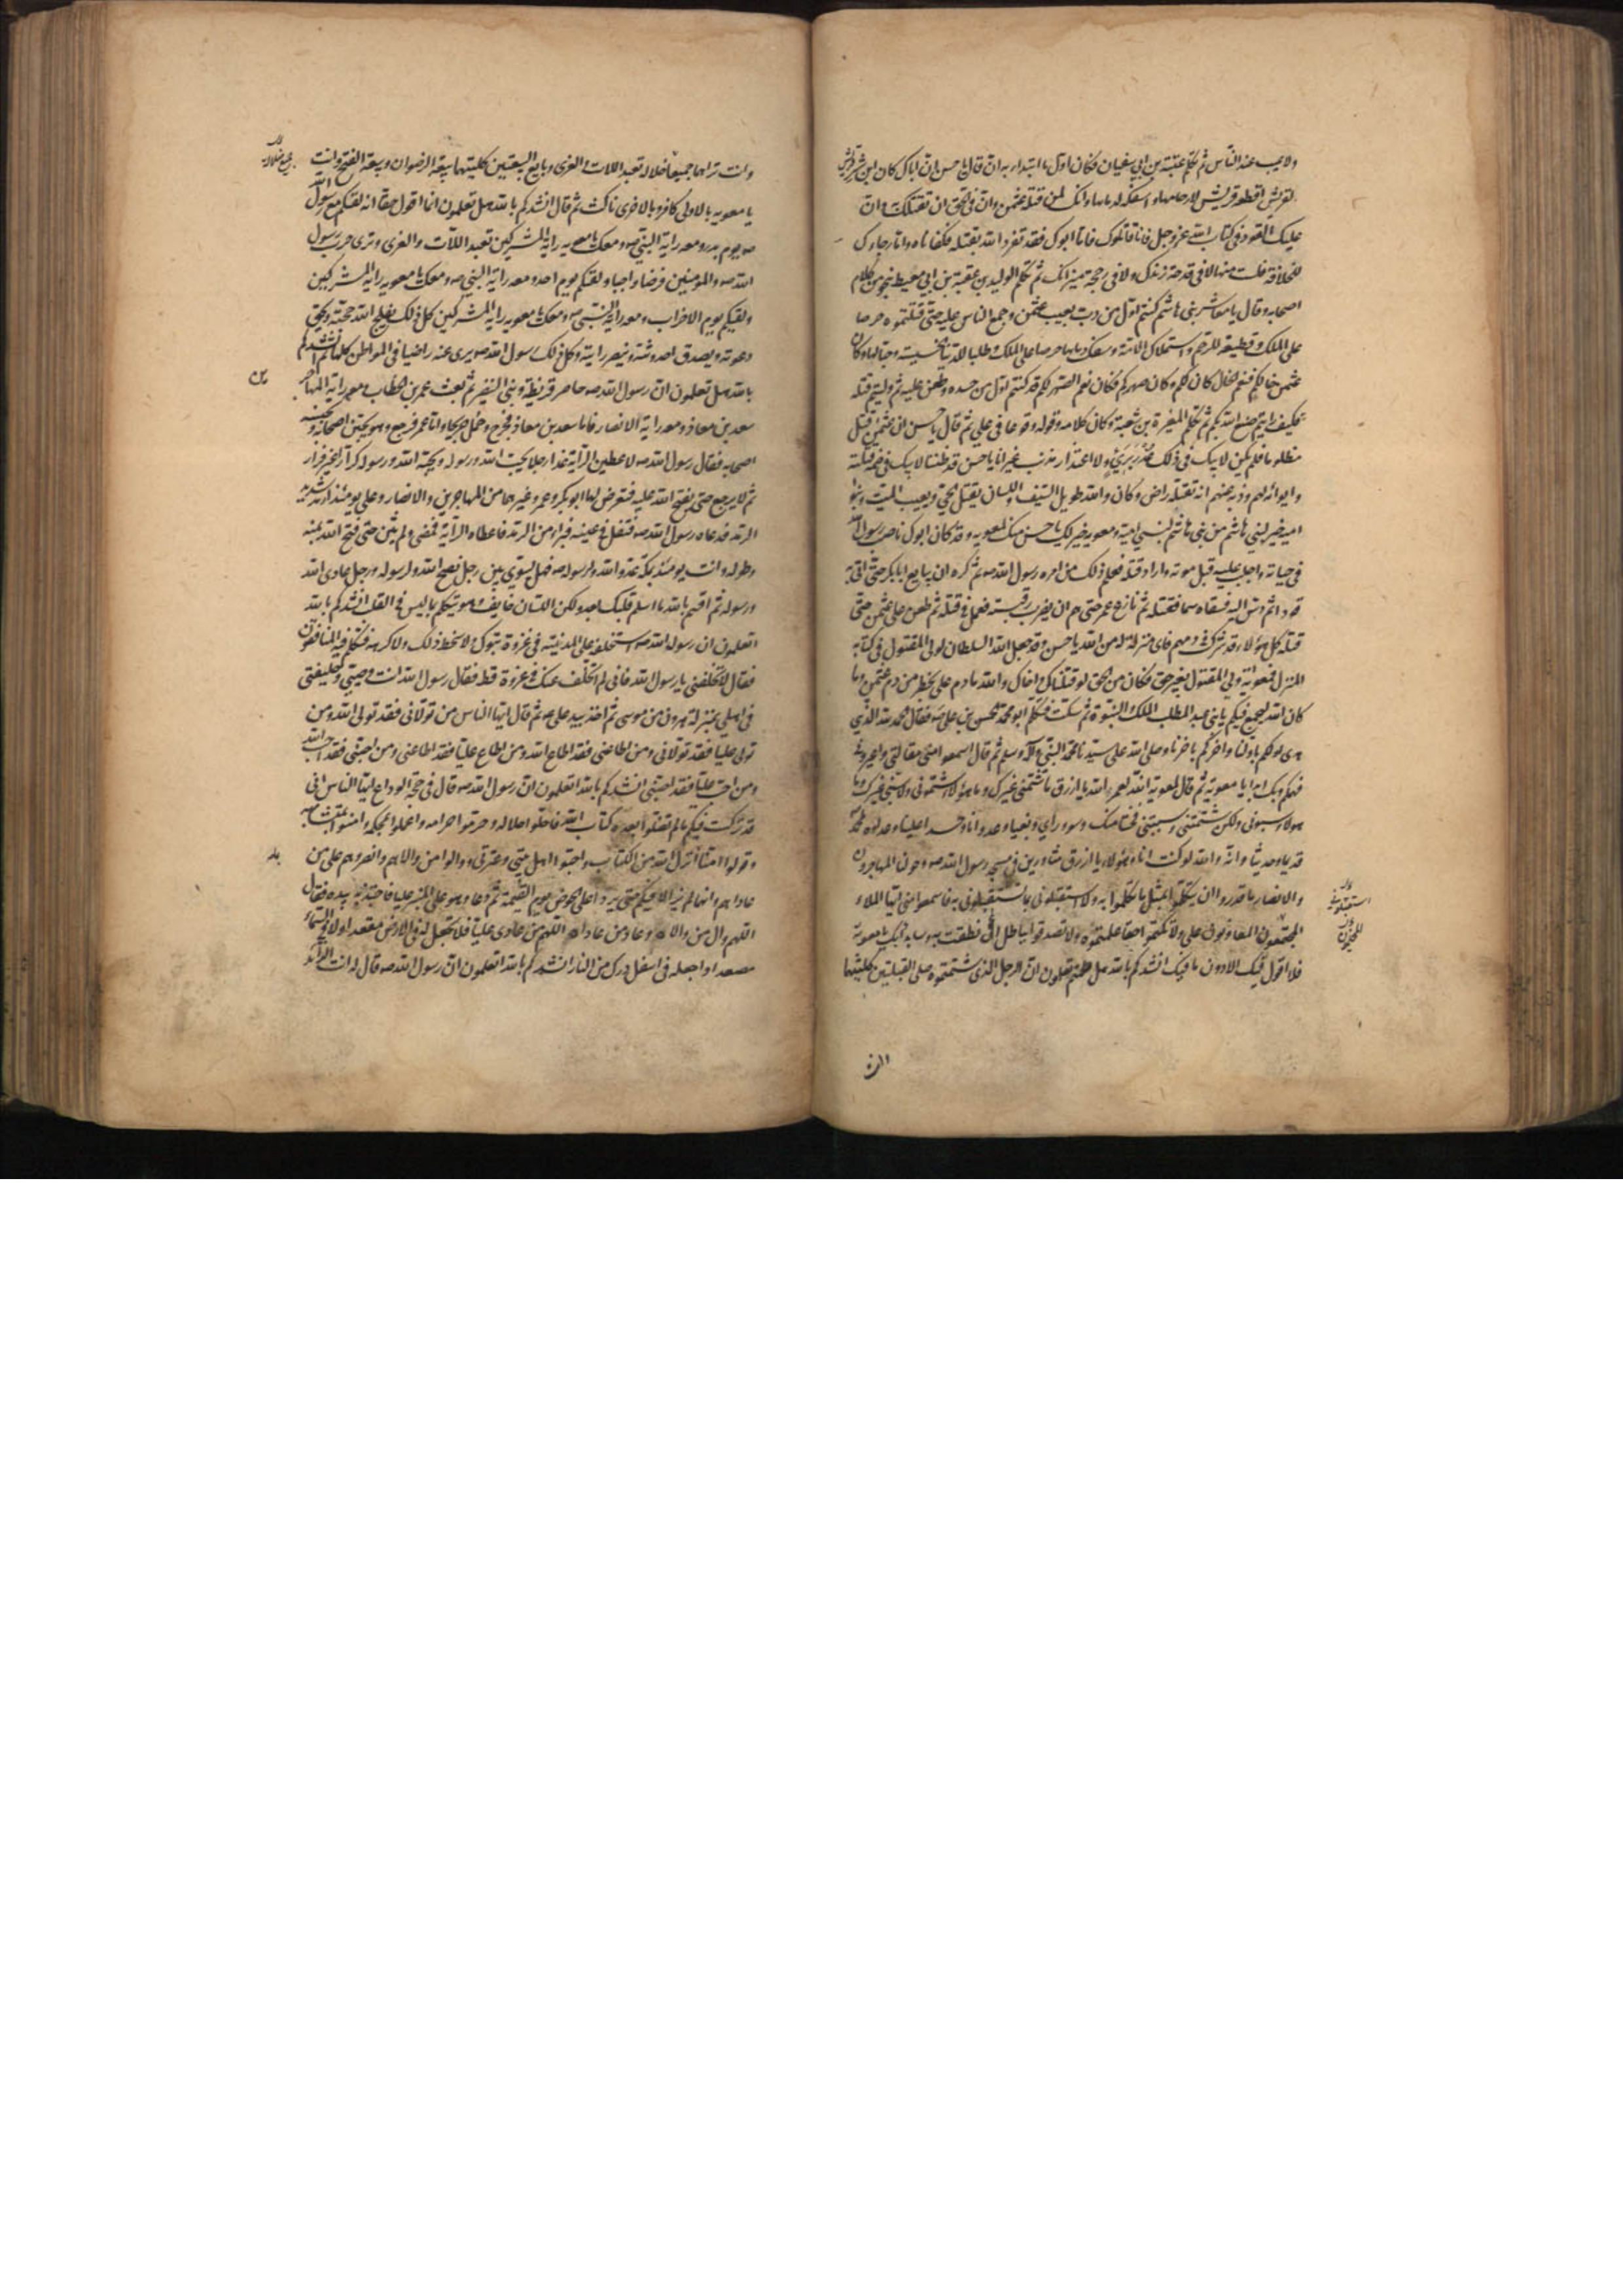 ولا يعيب عند الناس ثم تكلم عتبة بن ابي سفيان فكان اول ما ابتدا به ان قال يا حسن ان اباك كان شر قريش
لقريش اقطعه لارحامها واسفكه لدمائها وانك لمن قتلة عثمن وان في الحق ان نقتلك وان
عليك القود في كتاب الله عز وجل فانا قاتلوك فاما ابوك فقد تفرد الله بقتله فكفاناه واما رجاؤك
للخلافة فلست منها لا في قدحة زندك ولا في رجحة ميزانك ثم تكلم الوليد بن عقبة بن ابي معيط بنحو من كلام
اصحابه وقال يا معاشر بني هاشم كنتم اول من دب بعيب عثمن وجمع الناس عليه حتى قتلتموه حرصا
على الملك وقطيعة للرحم واستهلاك الامة وسفك دمائها حرصا على الملك وطلبا للدنيا الخسيسة وحبا لها وكان
عثمن خالكم فنعم الخال كان لكم وكان صهركم فكان نعم الصهر لكم قد كنتم اول من حسده وطعن عليه ثم وليتم قتله
فكيف رايتم صنع الله بكم ثم تكلم المغيرة بن شعبة وكان كلامه وقوله وقوعا في علي ثم قال يا حسن ان عثمن قتل
مظلوما فلم يكن لابيك في ذلك عذر بري ولا اعتذار مذنب غير انا يا حسن قد ظننا لابيك في ضمه قتلته
وايوائه لهم وذبه عنهم انه بقتله راض وكان والله طويل السيف واللسان يقتل الحي ويعيب الميت وبنو
امية خير لبني هاشم من بني هاشم لبني امية ومعوية خير لك يا حسن منك لمعوية وقد كان ابوك ناصب رسول الله
في حياته واجلب عليه قبل موته واراد قتله فعلم ذلك من امره رسول الله ص ثم كره ان يبايع ابا بكر حتى اتي به
قودا ثم دس اليه فسقاه سما فقتله ثم نازع عمر حتى هم ان يضرب رقبته فعمل في قتله ثم طعن على عثمن حتى
قتله كل هؤلاء قد شرك في دمهم فاي منزلة له من الله يا حسن وقد جعل الله السلطان لولي المقتول في كتابه
المنزل فمعوية ولي المقتول بغير حق فكان من الحق لو قتلناك واخاك والله ما دم علي بخطر من دم عثمن وما
كان الله ليجمع فيكم يا بني عبد المطلب الملك والنبوة ثم سكت فتكلم ابو محمد الحسن بن علي ع فقال الحمد لله الذي
هدى اولكم باولنا واخركم باخرنا وصلى الله على سيدنا محمد النبي واله وسلم ثم قال اسمعوا مني مقالتي واعيروني
فهمكم وبك ابدا يا معوية ثم قال لمعوية انه لعمر الله يا ازرق ما شتمني غيرك وما هؤلاء شتموني ولا سبني غيرك وما
هؤلاء سبوني ولكن شتمتني وسببتني فحشا منك وسوء راي وبغيا وعدوانا وحسدا علينا وعداوة لمحمد
قديما وحديثا وانه والله لو كنت انا وهؤلاء يا ازرق مثاورين في مسجد رسول الله ص وحولنا المهاجرون
والانصار ما قدروا ان يتكلموا بمثل ما تكلموا به ولا استقبلوني بما استقبلوني به فاسمعوا مني ايها الملاء
المجتمعون المعاونون علي ولا تكتموا حقا علمتموه ولا تصدقوا بباطل ان نطقت به وسابدا بك يا معوية
فلا اقول فيك الا دون ما فيك انشدكم بالله هل تعلمون ان الرجل الذي شتمتموه صلى القبلتين كلتيهما
وانت تراهما جميعا ضلالة تعبد اللات والعزى وبايع البيعتين كلتيهما بيعة الرضوان وبيعة الفتح وانت
يا معوية بالاولى كافر وبالاخرى ناكث ثم قال انشدكم بالله هل تعلمون انما اقول حقا انه لقيكم مع رسول الله
ص يوم بدر ومعه راية النبي ص ومعك يا معوية راية المشركين تعبد اللات والعزى وترى حرب رسول
الله ص والمؤمنين فرضا واجبا ولقيكم يوم احد ومعه راية النبي ص ومعك يا معوية راية المشركين
ولقيكم يوم الاحزاب ومعه راية النبي ص ومعك يا معوية راية المشركين كل ذلك يفلج الله حجته ويحق
دعوته ويصدق احدوثته وينصر رايته وكل ذلك رسول الله ص يرى عنه راضيا في المواطن كلها ثم انشدكم
بالله هل تعلمون ان رسول الله ص حاصر قريظة وبني النضير ثم بعث عمر بن الخطاب ومعه راية المهاجرين
سعد بن معاذ ومعه راية الانصار فاما سعد بن معاذ فجرح وحمل جريحا واما عمر فرجع وهو يجبن اصحابه ويجبنه
اصحابه فقال رسول الله ص لاعطين الراية غدا رجلا يحب الله ورسوله ويحبه الله ورسوله كرار غير فرار
ثم لا يرجع حتى يفتح الله عليه فتعرض لها ابو بكر وعمر وغيرهما من المهاجرين والانصار وعلي يومئذ ارمد شديد
الرمد فدعاه رسول الله ص فتفل في عينه فبراء من الرمد فاعطاه الراية فمضى ولم يثن حتى فتح الله بمنه
وطوله وانت يومئذ بمكة عدو الله ورسوله ص فهل يسوي بين رجل نصح لله ولرسوله ورجل عادى الله
ورسوله ثم اقسم بالله ما اسلم قلبك بعد ولكن اللسان خايف فهو يتكلم بما ليس في القلب انشدكم بالله
اتعلمون ان رسول الله ص استخلفه على المدينة في غزوة تبوك ولا سخطه ذلك ولا كرهه فتكلم فيه المنافقون
فقال لا تخلفني يا رسول الله فاني لم اتخلف عنك في غزوة قط فقال رسول الله انت وصيي وخليفتي
في اهلي بمنزلة هرون من موسى ثم اخذ بيد علي ع ثم قال ايها الناس من تولاني فقد تولى الله ومن
تولى عليا فقد تولاني ومن اطاعني فقد اطاع الله ومن اطاع عليا فقد اطاعني ومن احبني فقد احب الله
ومن احب عليا فقد احبني انشدكم بالله اتعلمون ان رسول الله ص قال في حجة الوداع ايها الناس اني
قد تركت فيكم ما لم تضلوا بعده كتاب الله فاحلوا حلاله وحرموا حرامه واعملوا بمحكمه وامنوا بمتشابهه
وقولوا امنا بما انزل الله من الكتاب واحبوا اهل بيتي وعترتي ووالوا من والاهم وانصروهم على من
عاداهم وانهما لم يزالا فيكم حتى يردا علي الحوض يوم القيمة ثم دعا وهو على المنبر عليا فاجتذبه بيده فقال
اللهم وال من والاه وعاد من عاداه اللهم من عادى عليا فلا تجعل له في الارض مقعدا ولا في السماء
مصعدا واجعله في اسفل درك من النار انشدكم بالله اتعلمون ان رسول الله ص قال له انت الذائد